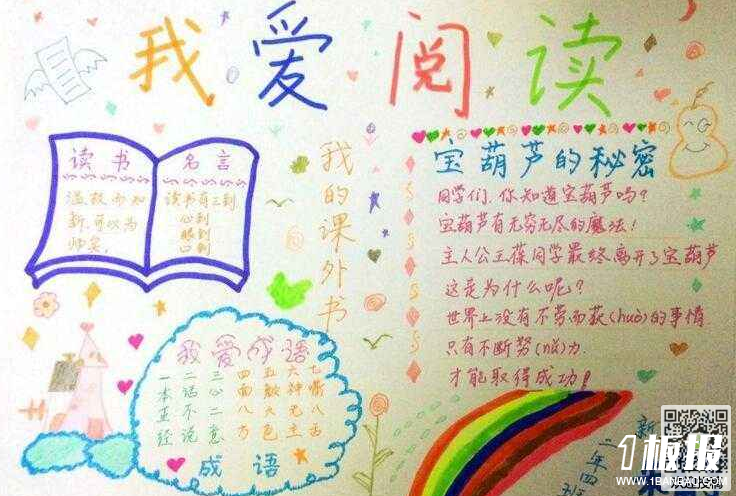 我爱阅读
读书
温故而知
新,可以为
师矣。
名言
读书有三到
心到
眼到
口到
我的课外书
宝葫芦的秘密
同学们,你知道宝葫芦吗?
宝葫芦有无穷无尽的魔法!
主人公王葆同学最终离开了宝葫芦
这是为什么呢?
世界上没有不劳而获(huò)的事情
只有不断努(nǔ)力
才能取得成功!
我爱成语
一本正经
二话不说
三心二意
四面八方
六神无主
七嘴八舌
成语
二年四班
1板报
WWW.1BANBAO.COM